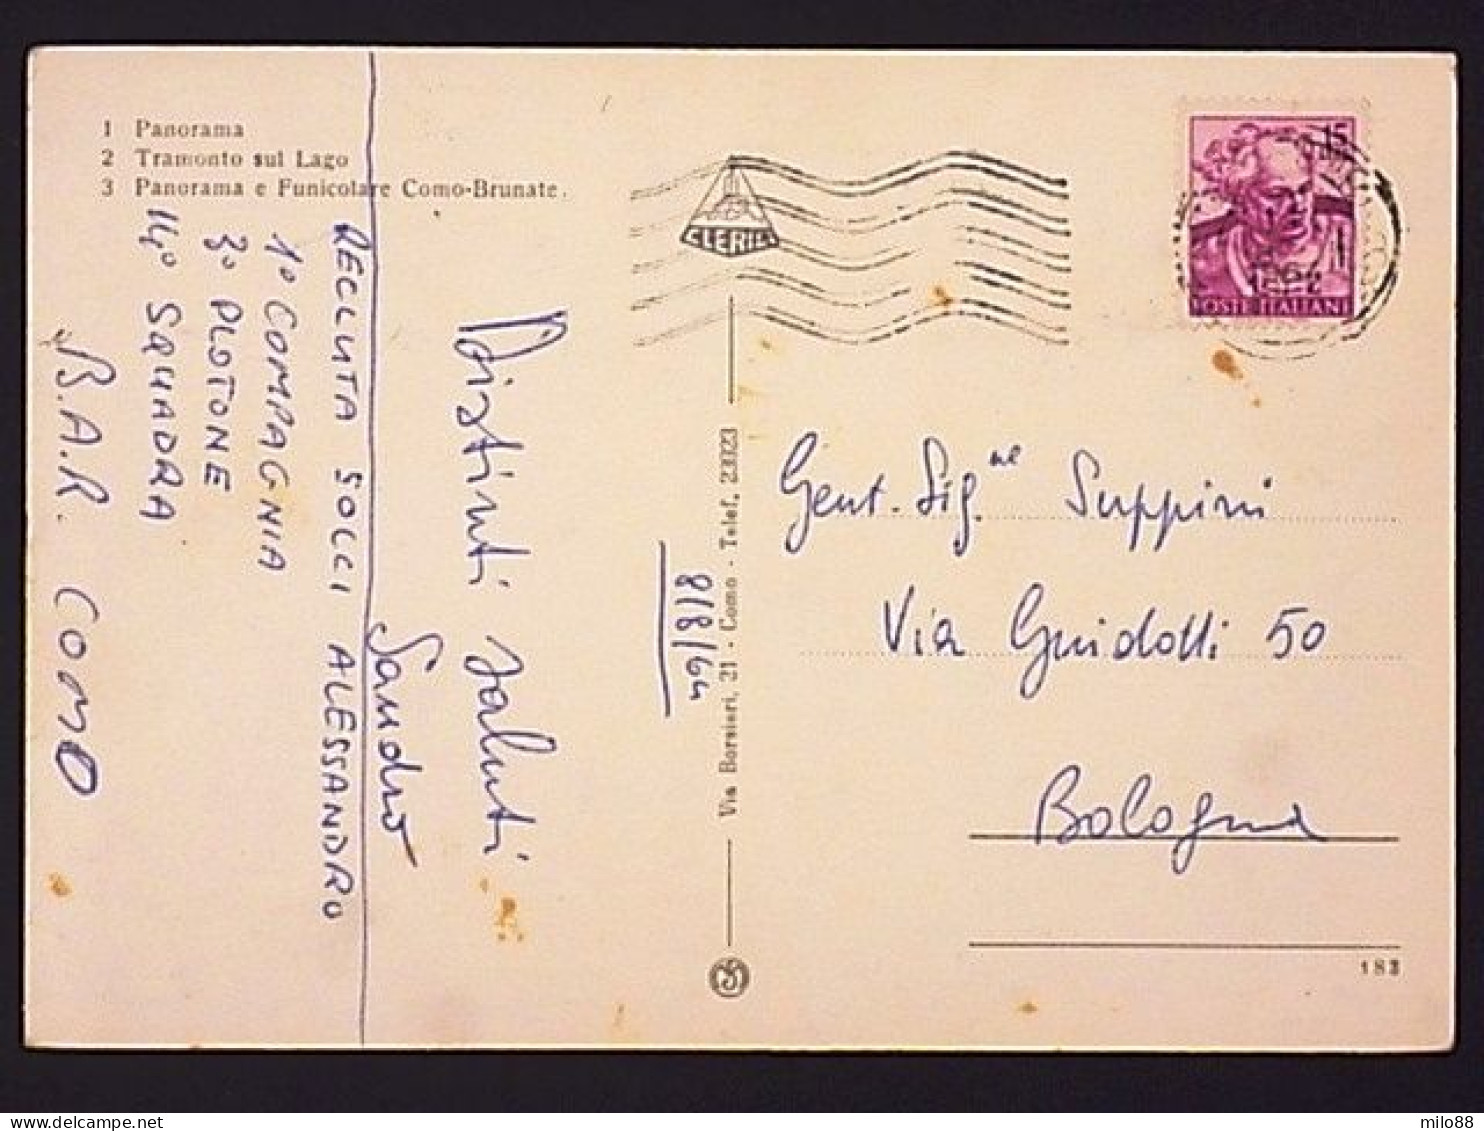 1 Panorama
2 Tramonto sul Lago
3 Panorama e Funicolare Como-Brunate.
RECLUTA SOLCI ALESSANDRO
1° COMPAGNIA
3° PLOTONE
14° SQUADRA
B.A.R. COMO
Distinti saluti
Sandro
8/8/64
CLERICI
Via Borsieri, 21 - Como - Telef. 23023
15
POSTE ITALIANE
Gent. Sig.ne Suppini
Via Guidotti 50
Bologna
183
milo88